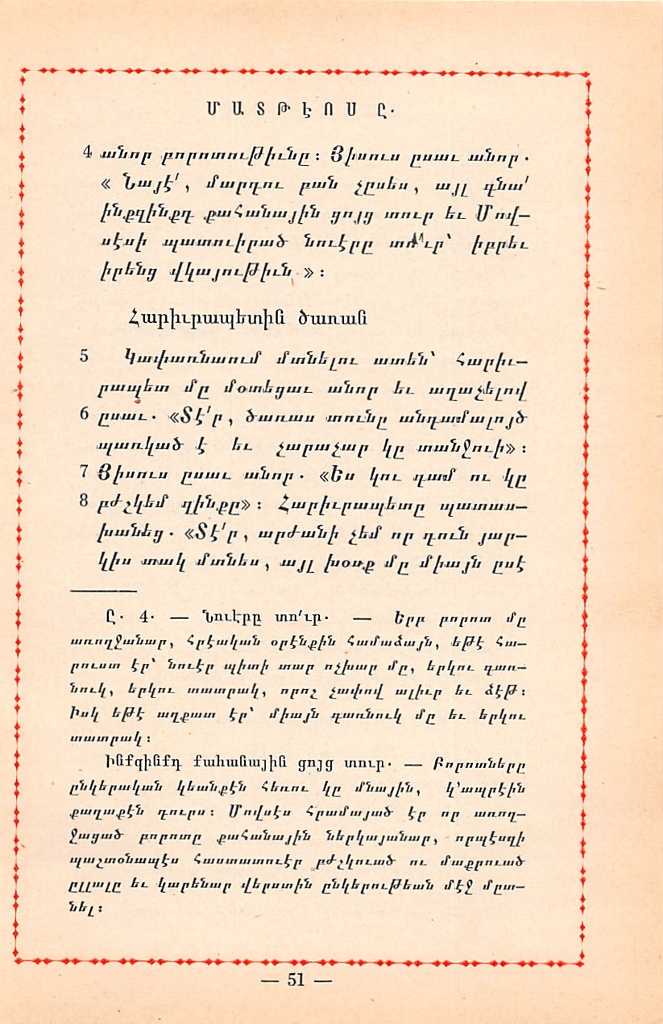 ՄԱՏԹԷՈՍ Ը.
4 անոր բորոտութիւնը։ Յիսուս ըսաւ անոր.
« Նայէ՛, մարդու բան չըսես, այլ գնա՛
ինքզինքդ քահանային ցոյց տուր եւ Մով–
սէսի պատուիրած նուէրը տո՛ւր՝ իբրեւ
իրենց վկայութիւն »։
Հարիւրապետին ծառան
5 Կափառնաում մտնելու ատեն՝ հարիւ–
րապետ մը մօտեցաւ անոր եւ աղաչելով
6 ըսաւ. «Տէ՛ր, ծառաս տունը անդամալոյծ
պառկած է եւ չարաչար կը տանջուի»։
7 Յիսուս ըսաւ անոր. «Ես կու գամ ու կը
8 բժշկեմ զինքը»։ Հարիւրապետը պատաս–
խանեց. «Տէ՛ր, արժանի չեմ որ դուն յար–
կիս տակ մտնես, այլ խօսք մը միայն ըսէ
Ը. 4. — Նուէրը տո՛ւր. — Երբ բորոտ մը
առողջանար, հրէական օրէնքին համաձայն, եթէ հա–
րուստ էր՝ նուէր պիտի տար ոչխար մը, երկու գառ–
նուկ, երկու տատրակ, որոշ չափով ալիւր եւ ձէթ։
Իսկ եթէ աղքատ էր՝ միայն գառնուկ մը եւ երկու
տատրակ։
Ինքզինքդ քահանային ցոյց տուր. — Բորոտները
ընկերական կեանքէն հեռու կը մնային, կ՚ապրէին
քաղաքէն դուրս։ Մովսէս հրամայած էր որ առող–
ջացած բորոտը քահանային ներկայանար, որպէսզի
պաշտօնապէս հաստատուէր բժշկուած ու մաքրուած
ըլլալը եւ կարենար վերստին ընկերութեան մէջ մըտ–
նել։
— 51 —